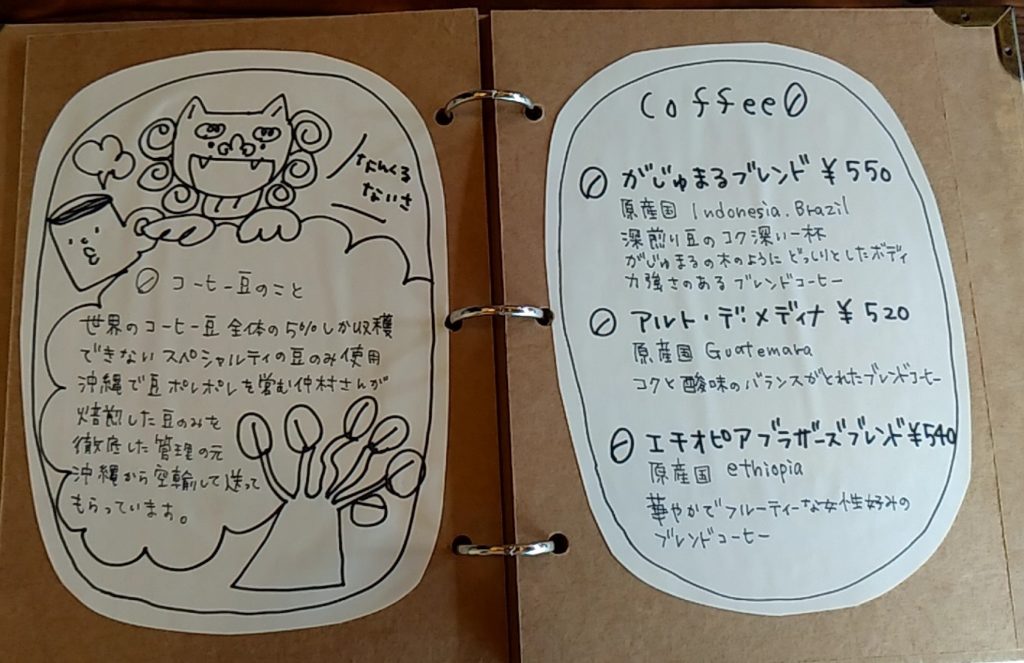 なんくる
ないさ
コーヒー豆のこと
世界のコーヒー豆全体の5%しか収穫
できない スペシャルティの豆のみ使用
沖縄で豆ポレポレを営む仲村さんが
焙煎した豆のみを
徹底した管理の元
沖縄から空輸して送って
もらっています。
Coffee
がじゅまるブレンド ¥550
原産国 Indonesia. Brazil
深煎り豆のコク深い一杯
がじゅまるの木のように どっしりとしたボディ
力強さのある ブレンドコーヒー
アルト・デ・メディナ ¥520
原産国 Guatemara
コクと酸味のバランスがとれたブレンドコーヒー
エチオピアブラザーズブレンド ¥540
原産国 ethiopia
華やかでフルーティーな女性好みの
ブレンドコーヒー